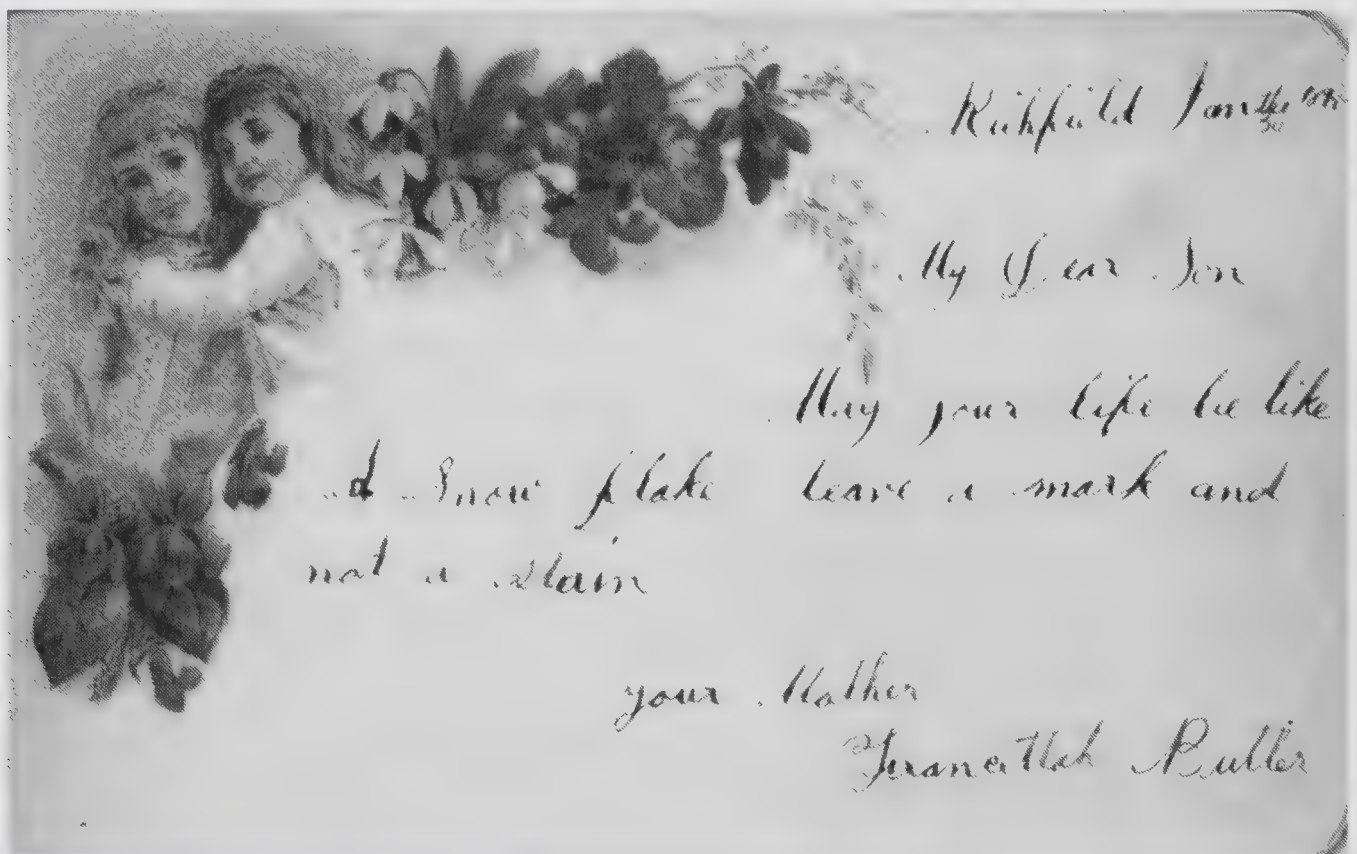 Richfield Jan the
My Dear Son
May your life be like
A Snow flake leave a mark and
not a stain
your Mother
Butler